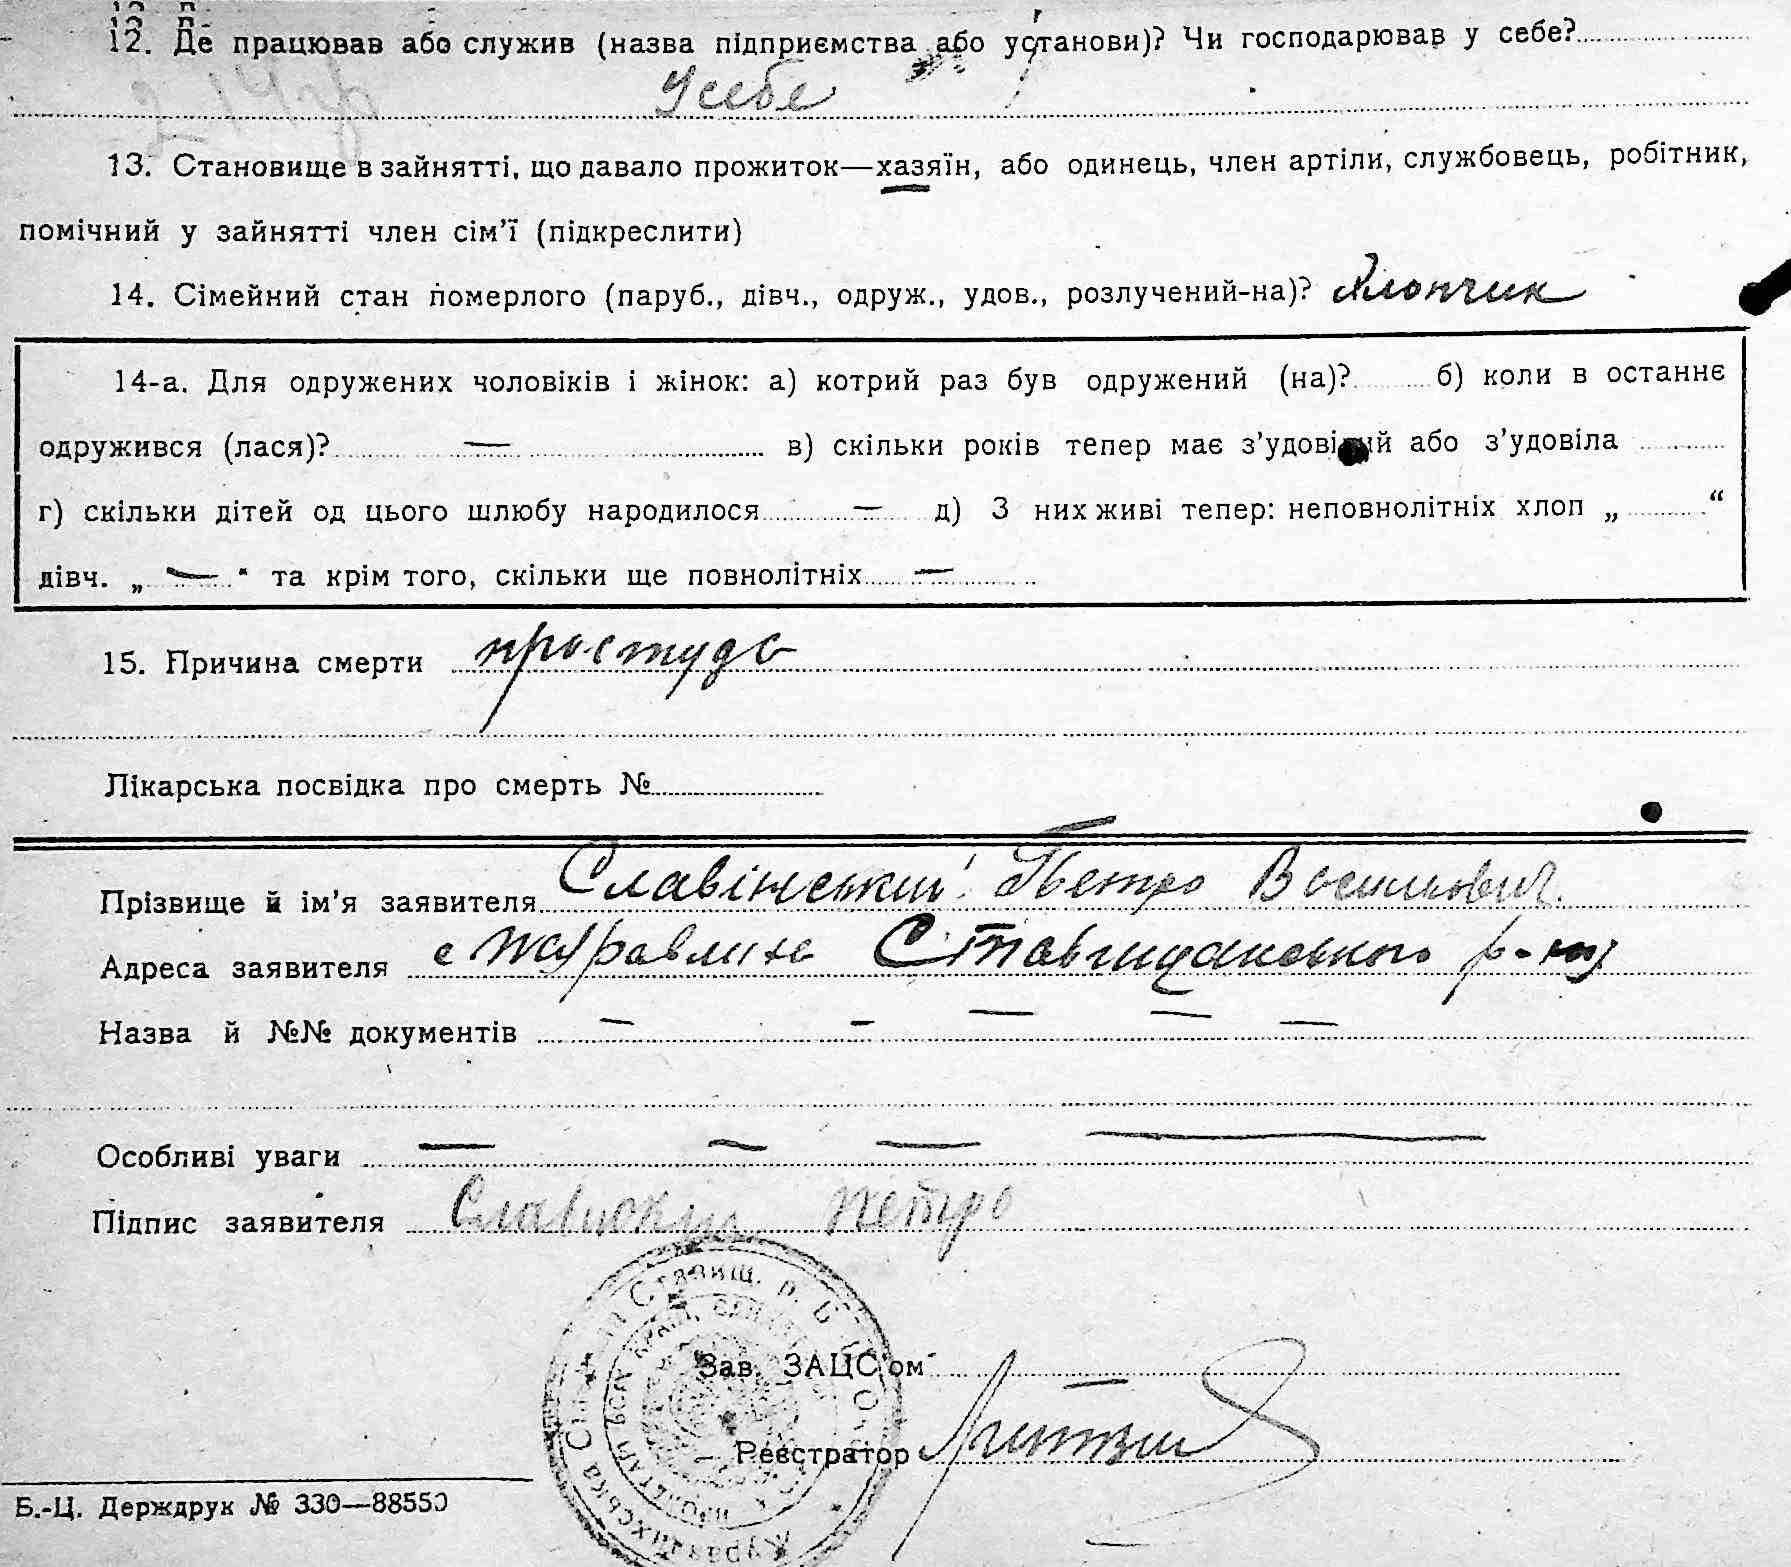 12. Де працював або служив (назва підприємства або установи)? Чи господарював у себе?
У себе
13. Становище в зайнятті, що давало прожиток—хазяїн, або одинець, член артіли, службовець, робітник,
помічний у зайнятті член сім’ї (підкреслити)
14. Сімейний стан померлого (паруб., дівч., одруж., удов., розлучений-на)? Хлопчик
14-а. Для одружених чоловіків і жінок: а) котрий раз був одружений (на)? б) коли в останнє
одружився (лася)? — в) скільки років тепер має з’удовілий або з’удовіла
г) скільки дітей од цього шлюбу народилося — д) З них живі тепер: неповнолітніх хлоп „ “
дівч. „ — “ та крім того, скільки ще повнолітніх —
15. Причина смерти простуда
Лікарська посвідка про смерть №
Прізвище й ім’я заявителя Славінський Петро Василович
Адреса заявителя с Журавлиха Ставищанського р-ну
Назва й №№ документів — — — — —
Особливі уваги — — — —
Підпис заявителя Славиский петро
Ставищ. р. Б
Зав. ЗАЦС’ом
Реєстратор
Б.-Ц. Держдрук № 330—88550